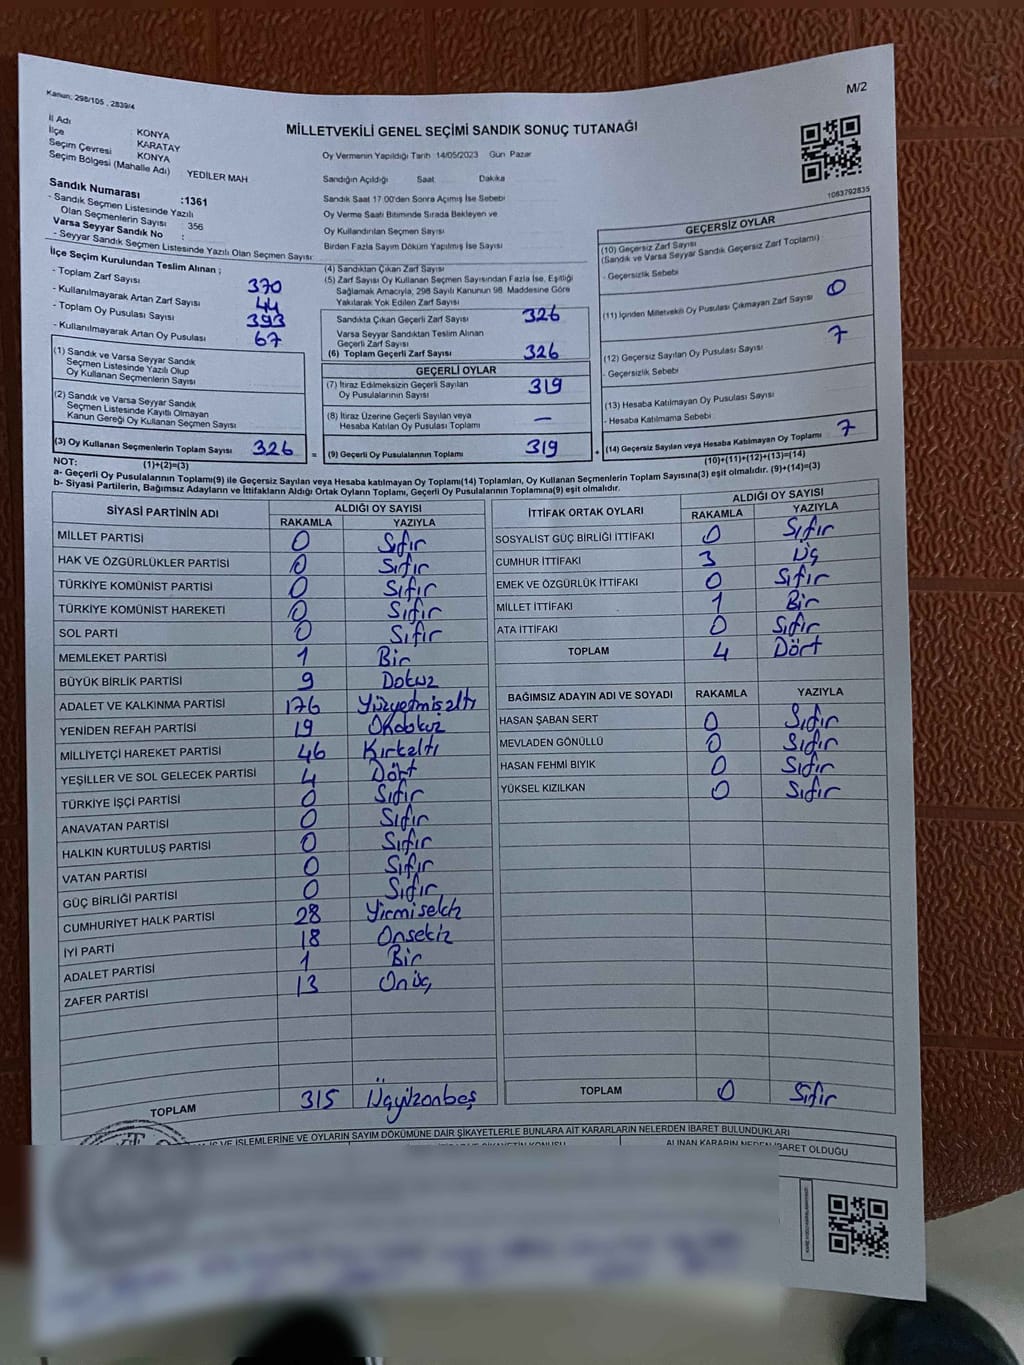 Kanun; 298/105 , 2839/4
M/2
MİLLETVEKİLİ GENEL SEÇİMİ SANDIK SONUÇ TUTANAĞI
İl Adı : KONYA
İlçe : KARATAY
Seçim Çevresi : KONYA
Seçim Bölgesi (Mahalle Adı) YEDİLER MAH
Sandık Numarası :1361
- Sandık Seçmen Listesinde Yazılı
Olan Seçmenlerin Sayısı : 356
Varsa Seyyar Sandık No :
- Seyyar Sandık Seçmen Listesinde Yazılı Olan Seçmen Sayısı:
Oy Vermenin Yapıldığı Tarih :14/05/2023 Gün: Pazar
Sandığın Açıldığı Saat Dakika
Sandık Saat 17:00'den Sonra Açımış İse Sebebi
Oy Verme Saati Bitiminde Sırada Bekleyen ve
Oy Kullandırılan Seçmen Sayısı
Birden Fazla Sayım Döküm Yapılmış İse Sayısı
1083792835
İlçe Seçim Kurulundan Teslim Alınan ;
- Toplam Zarf Sayısı 370
- Kullanılmayarak Artan Zarf Sayısı 44
- Toplam Oy Pusulası Sayısı 393
- Kullanılmayarak Artan Oy Pusulası 67
(1) Sandık ve Varsa Seyyar Sandık
Seçmen Listesinde Yazılı Olup
Oy Kullanan Seçmenlerin Sayısı
(2) Sandık ve Varsa Seyyar Sandık
Seçmen Listesinde Kayıtlı Olmayan
Kanun Gereği Oy Kullanan Seçmen Sayısı
(3) Oy Kullanan Seçmenlerin Toplam Sayısı 326
(1)+(2)=(3)
(4) Sandıktan Çıkan Zarf Sayısı
(5) Zarf Sayısı Oy Kullanan Seçmen Sayısından Fazla İse, Eşitliği
Sağlamak Amacıyla, 298 Sayılı Kanunun 98. Maddesine Göre
Yakılarak Yok Edilen Zarf Sayısı
Sandıkta Çıkan Geçerli Zarf Sayısı 326
Varsa Seyyar Sandıktan Teslim Alınan
Geçerli Zarf Sayısı
(6) Toplam Geçerli Zarf Sayısı 326
GEÇERLİ OYLAR
(7) İtiraz Edilmeksizin Geçerli Sayılan
Oy Pusulalarının Sayısı 319
(8) İtiraz Üzerine Geçerli Sayılan veya
Hesaba Katılan Oy Pusulası Toplamı —
= (9) Geçerli Oy Pusulalarının Toplamı 319
GEÇERSİZ OYLAR
(10) Geçersiz Zarf Sayısı
(Sandık ve Varsa Seyyar Sandık Geçersiz Zarf Toplamı)
- Geçersizlik Sebebi
(11) İçinden Milletvekili Oy Pusulası Çıkmayan Zarf Sayısı 0
(12) Geçersiz Sayılan Oy Pusulası Sayısı 7
- Geçersizlik Sebebi
(13) Hesaba Katılmayan Oy Pusulası Sayısı
- Hesaba Katılmama Sebebi
+ (14) Geçersiz Sayılan veya Hesaba Katılmayan Oy Toplamı 7
(10)+(11)+(12)+(13)=(14)
NOT:
a- Geçerli Oy Pusulalarının Toplamı(9) ile Geçersiz Sayılan veya Hesaba katılmayan Oy Toplamı(14) Toplamları, Oy Kullanan Seçmenlerin Toplam Sayısına(3) eşit olmalıdır. (9)+(14)=(3)
b- Siyasi Partilerin, Bağımsız Adayların ve İttifakların Aldığı Ortak Oyların Toplamı, Geçerli Oy Pusulalarının Toplamına(9) eşit olmalıdır.
SİYASİ PARTİNİN ADI ALDIĞI OY SAYISI
RAKAMLA YAZIYLA
MİLLET PARTİSİ 0 Sıfır
HAK VE ÖZGÜRLÜKLER PARTİSİ 0 Sıfır
TÜRKİYE KOMÜNİST PARTİSİ 0 Sıfır
TÜRKİYE KOMÜNİST HAREKETİ 0 Sıfır
SOL PARTİ 0 Sıfır
MEMLEKET PARTİSİ 1 Bir
BÜYÜK BİRLİK PARTİSİ 9 Dokuz
ADALET VE KALKINMA PARTİSİ 176 Yüzyetmişaltı
YENİDEN REFAH PARTİSİ 19 Ondokuz
MİLLİYETÇİ HAREKET PARTİSİ 46 Kırkaltı
YEŞİLLER VE SOL GELECEK PARTİSİ 4 Dört
TÜRKİYE İŞÇİ PARTİSİ 0 Sıfır
ANAVATAN PARTİSİ 0 Sıfır
HALKIN KURTULUŞ PARTİSİ 0 Sıfır
VATAN PARTİSİ 0 Sıfır
GÜÇ BİRLİĞİ PARTİSİ 0 Sıfır
CUMHURİYET HALK PARTİSİ 28 Yirmisekiz
İYİ PARTİ 18 Onsekiz
ADALET PARTİSİ 1 Bir
ZAFER PARTİSİ 13 Onüç
TOPLAM 315 Üçyüzonbeş
İTTİFAK ORTAK OYLARI ALDIĞI OY SAYISI
RAKAMLA YAZIYLA
SOSYALİST GÜÇ BİRLİĞİ İTTİFAKI 0 Sıfır
CUMHUR İTTİFAKI 3 Üç
EMEK VE ÖZGÜRLÜK İTTİFAKI 0 Sıfır
MİLLET İTTİFAKI 1 Bir
ATA İTTİFAKI 0 Sıfır
TOPLAM 4 Dört
BAĞIMSIZ ADAYIN ADI VE SOYADI RAKAMLA YAZIYLA
HASAN ŞABAN SERT 0 Sıfır
MEVLADEN GÖNÜLLÜ 0 Sıfır
HASAN FEHMİ BIYIK 0 Sıfır
YÜKSEL KIZILKAN 0 Sıfır
TOPLAM 0 Sıfır
İŞ VE İŞLEMLERİNE VE OYLARIN SAYIM DÖKÜMÜNE DAİR ŞİKAYETLERLE BUNLARA AİT KARARLARIN NELERDEN İBARET BULUNDUKLARI
ALINAN KARARIN NEDEN İBARET OLDUĞU